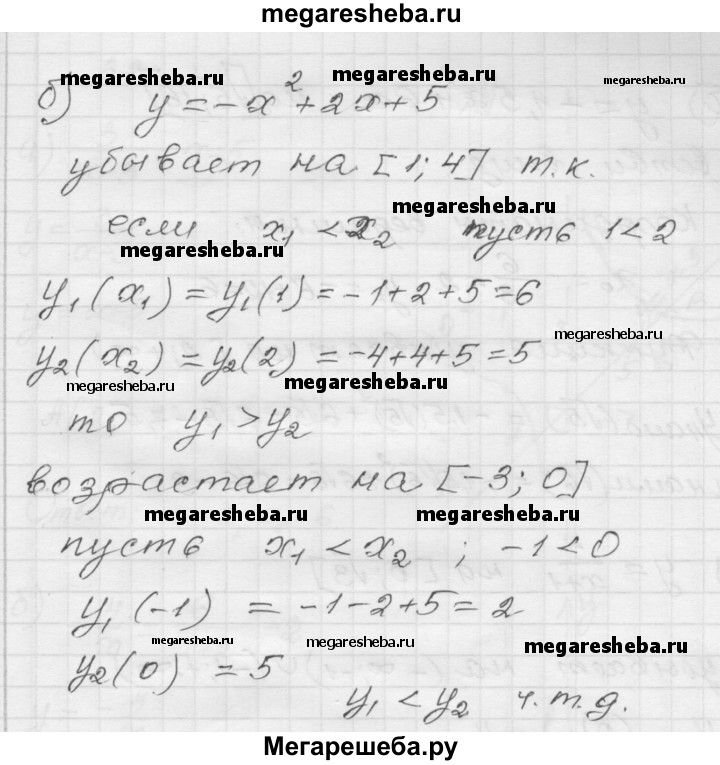 megaresheba.ru
megaresheba.ru megaresheba.ru megaresheba.ru
б) y = -x² + 2x + 5
убывает на [1; 4] т.к.
megaresheba.ru
если x₁ < x₂ пусть 1 < 2
megaresheba.ru
y₁(x₁) = y₁(1) = -1 + 2 + 5 = 6
megaresheba.ru
y₂(x₂) = y₂(2) = -4 + 4 + 5 = 5
megaresheba.ru megaresheba.ru
то y₁ > y₂
возрастает на [-3; 0]
megaresheba.ru megaresheba.ru
пусть x₁ < x₂ ; -1 < 0
y₁(-1) = -1 - 2 + 5 = 2
megaresheba.ru megaresheba.ru megaresheba.ru
y₂(0) = 5
y₁ < y₂ ч.т.д.
Мегарешеба.ру